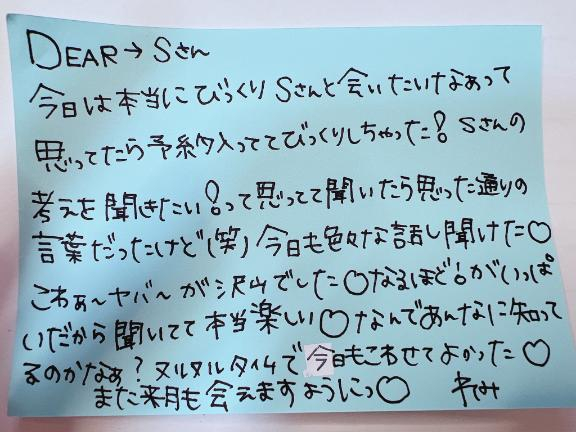 DEAR→Sさん
今日は本当にびっくりSさんと会いたいなぁって
思ってたら予約入っててびっくりしちゃった! Sさんの
考えを聞きたい!って思ってて聞いたら思った通りの
言葉だったけど(笑)今日も色々な話し聞けた♡
こわぁ~ヤバ~が沢山でした♡なるほど!がいっぱ
いだから聞いてて本当楽しい♡なんであんなに知って
るのかなぁ?ヌルヌルタイムで今日もこわせてよかった♡
また来月も会えますようにっ♡